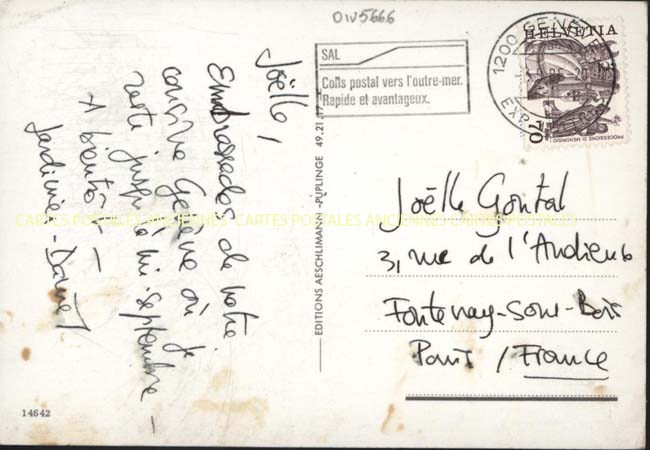 DIV5666
Joëlle,
Embrassades de notre
Genève où je
reste jusqu'à mi-Septembre -
A bientôt -
SAL
Colis postal vers l'outre-mer.
Rapide et avantageux.
1200 GENÈVE
EXP
HELVETIA
PROCESSIONE DI MENDRISIO
70
EDITIONS AESCHLIMANN - PUPLINGE 49.21.
Joëlle Gontal
3, rue de l'
Fontenay-Sous-Bois
Paris / France
14642
CARTES POSTALES ANCIENNES CARTES POSTALES ANCIENNES CARTES POSTALES